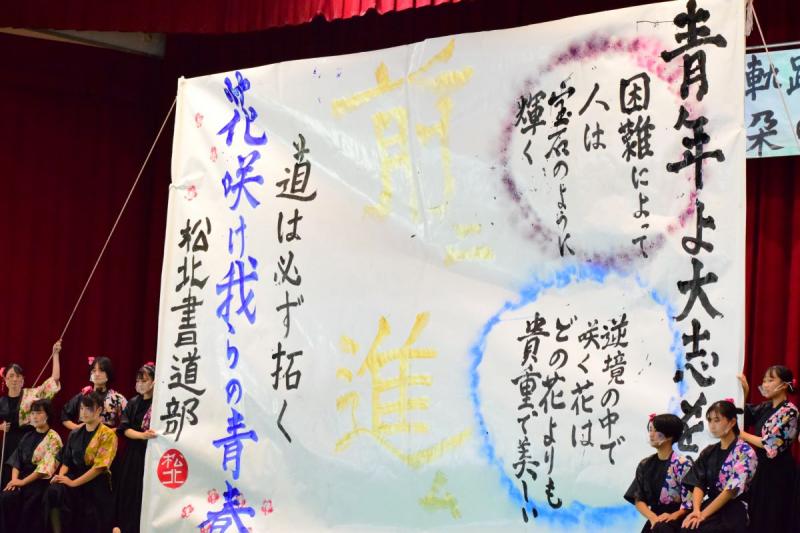 軌
朶
青年よ大志を
困難によって
人は
宝石のように
輝く
逆境の中で
咲く花は
どの花よりも
貴重で美しい
前に進む
道は必ず拓く
花咲け我らの青春
松北書道部
松北